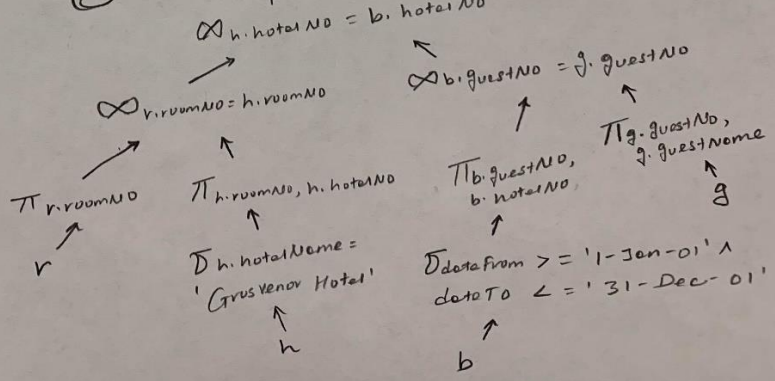 ∞ h.hotelNO = b.hotelNO
∞ r.roomNO = h.roomNO
∞ b.guestNO = g.guestNO
π r.roomNO
π h.roomNO, h.hotelNO
π b.guestNO,
b.hotelNO
π g.guestNO,
g.guestName
r
σ h.hotelName =
'Grosvenor Hotel'
h
σ dateFrom >= '1-Jan-01' ∧
dateTo <= '31-Dec-01'
b
g